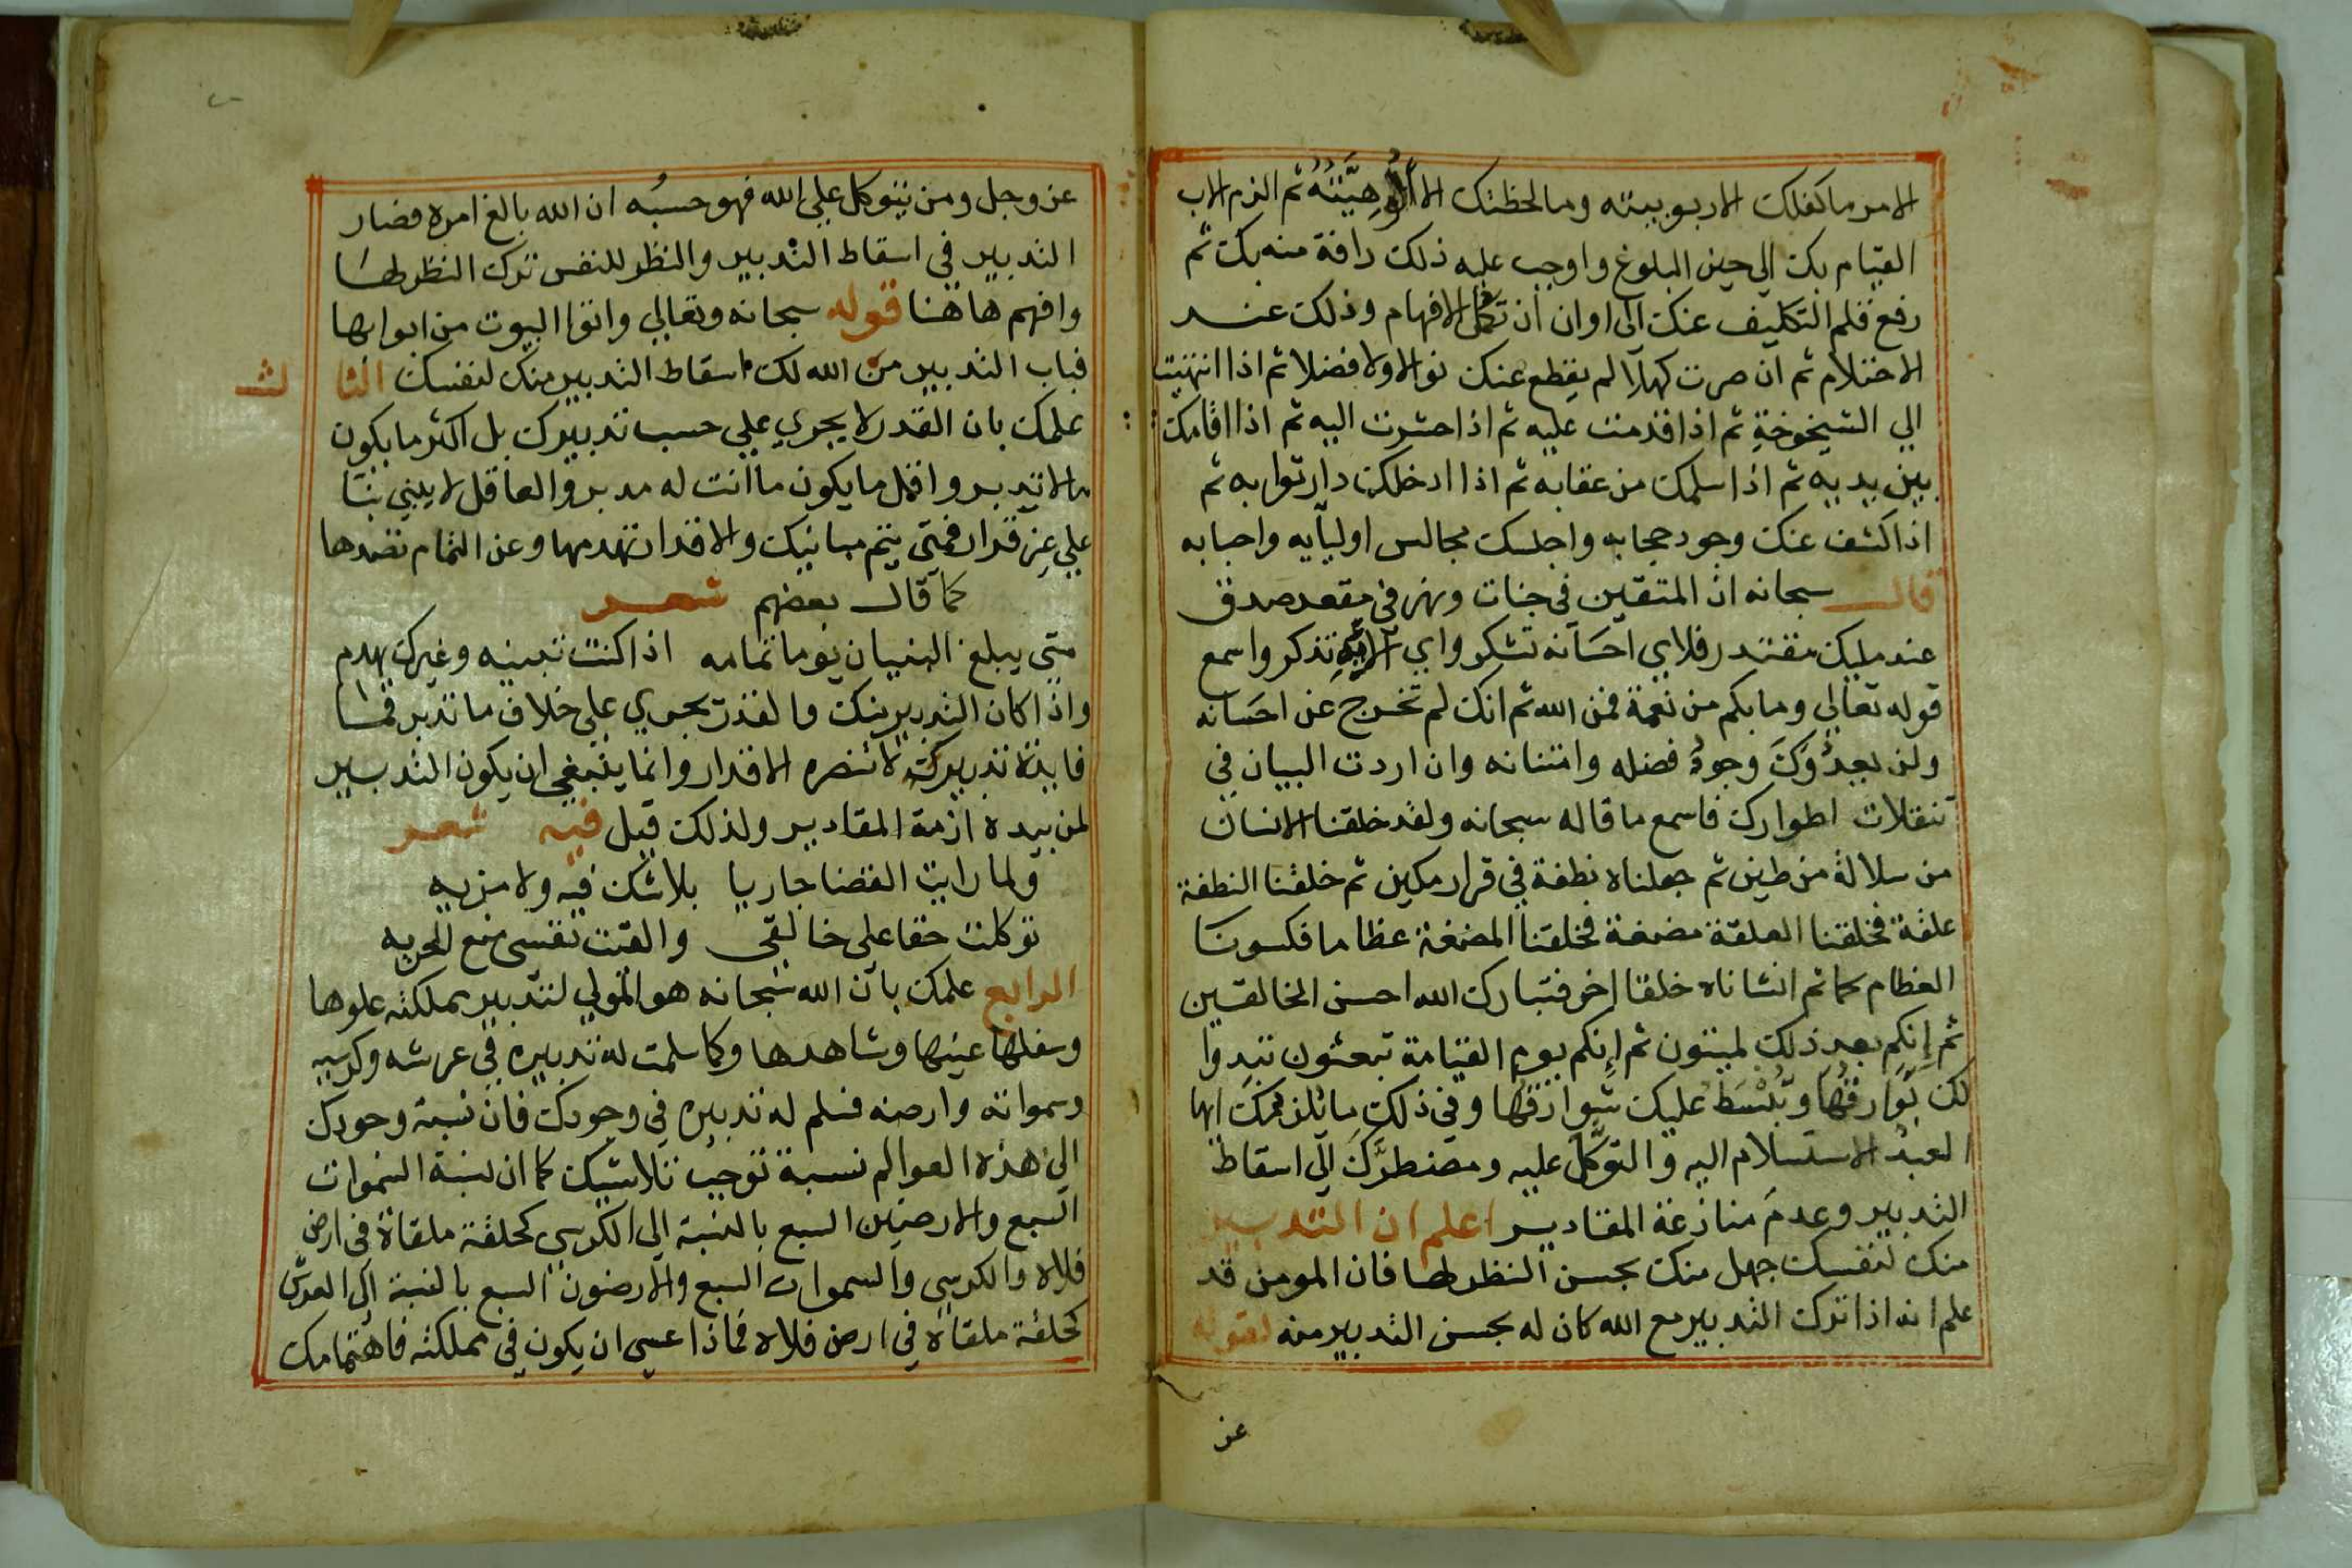 الامر ما كفلك الا ربوبيته وما لحظتك الا ألُوهِيَّتُهُ ثم الزم الاب
القيام بك الي حين البلوغ واوجب عليه ذلك رافة منه بك ثم
رفع قلم التكليف عنك الي اوان ان تكمل الافهام وذلك عند
الاحتلام ثم ان صرت كهلا لم يقطع عنك نوالا ولا فضلا ثم اذا انتهيت
الي الشيخوخة ثم اذا قدمت عليه ثم اذا حشرت اليه ثم اذا اقامك
بين يديه ثم اذا سلمك من عقابه ثم اذا ادخلك دار ثوابه ثم
اذا كشف عنك وجود حجابه واجلسك مجالس اوليآيه واحبابه
قال سبحانه ان المتقين في جنات ونهر في مقعد صدق
عند مليك مقتدر فلاي احسانه تشكر واي الايه تذكر واسمع
قوله تعالي وما بكم من نعمة فمن الله ثم انك لم تخرج عن احسانه
ولن يعدُوَكَ وجودُ فضله وامتنانه وان اردت البيان في
تنقلات اطوارك فاسمع ما قاله سبحانه ولقد خلقنا الانسان
من سلالة من طين ثم جعلناه نطفة في قرار مكين ثم خلقنا النطفة
علقة فخلقنا العلقة مضغة فخلقنا المضغة عظاما فكسونا
العظام لحما ثم انشاناه خلقا اخر فتبارك الله احسن الخالقين
ثم إنكم بعد ذلك لميتون ثم إنكم يوم القيامة تبعثون تبدوا
لك بَوارقُهَا وتُبْسَطُ عليك شوارقُها وفي ذلك ما يلزمك ايها
العبدُ الاستسلام اليه والتوكّلَ عليه ومضطرُّكَ الي اسقاط
التدبير وعدمَ منازعة المقادير اعلم ان التدبير
منك لنفسك جهل منك بحسن النظر لها فان المومن قد
علم انه اذا ترك التدبير مع الله كان له بحسن التدبير منه لقوله
عز
عز وجل ومن يتوكل علي الله فهو حسبُه ان الله بالغ امره فصار
التدبير في اسقاط التدبير والنظر للنفس ترك النظر لها
وافهم هاهنا قوله سبحانه وتعالي واتوا البيوت من ابوابها
فباب التدبير من الله لك اسقاط التدبير منك لنفسك الثالث
علمك بان القدر لا يجري علي حسب تدبيرك بل اكثر ما يكون
ما لا تدبر واقل ما يكون ما انت له مدبر والعاقل لا يبني بنا
علي غير قرار فمتي يتم مبانيك والاقدار تهدمها وعن التمام تصدها
كما قال بعضهم شعر
متي يبلغ البنيان يوما تمامه اذا كنت تبنيه وغيرك يهدم
واذا كان التدبير منك والقدر يجري علي خلاف ما تدبر فما
فايدة تدبيرك لا تنصره الاقدار وانما ينبغي ان يكون التدبير
لمن بيده ازمة المقادير ولذلك قيل فيه شعر
ولما رايت القضا جاريا بلا شك فيه ولا مزيه
توكلت حقا على خالقي والقيت نفسي مع الجريه
الرابع علمك بان الله سبحانه هو المتولي لتدبير مملكته علوها
وسفلها غيبها وشاهدها وكما سلمت له تدبيره في عرشه وكرسيه
وسمواته وارضه فسلم له تدبيره في وجودك فان نسبة وجودك
الي هذه العوالم نسبة توجب تلاشيك كما ان نسبة السموات
السبع والارضين السبع بالنسبة الي الكرسي كحلقة ملقاة في ارض
فلاه والكرسي والسموات السبع والارضون السبع بالنسبة الي العرش
كحلقة ملقاة في ارض فلاه فماذا عسي ان يكون في مملكته فاهتمامك